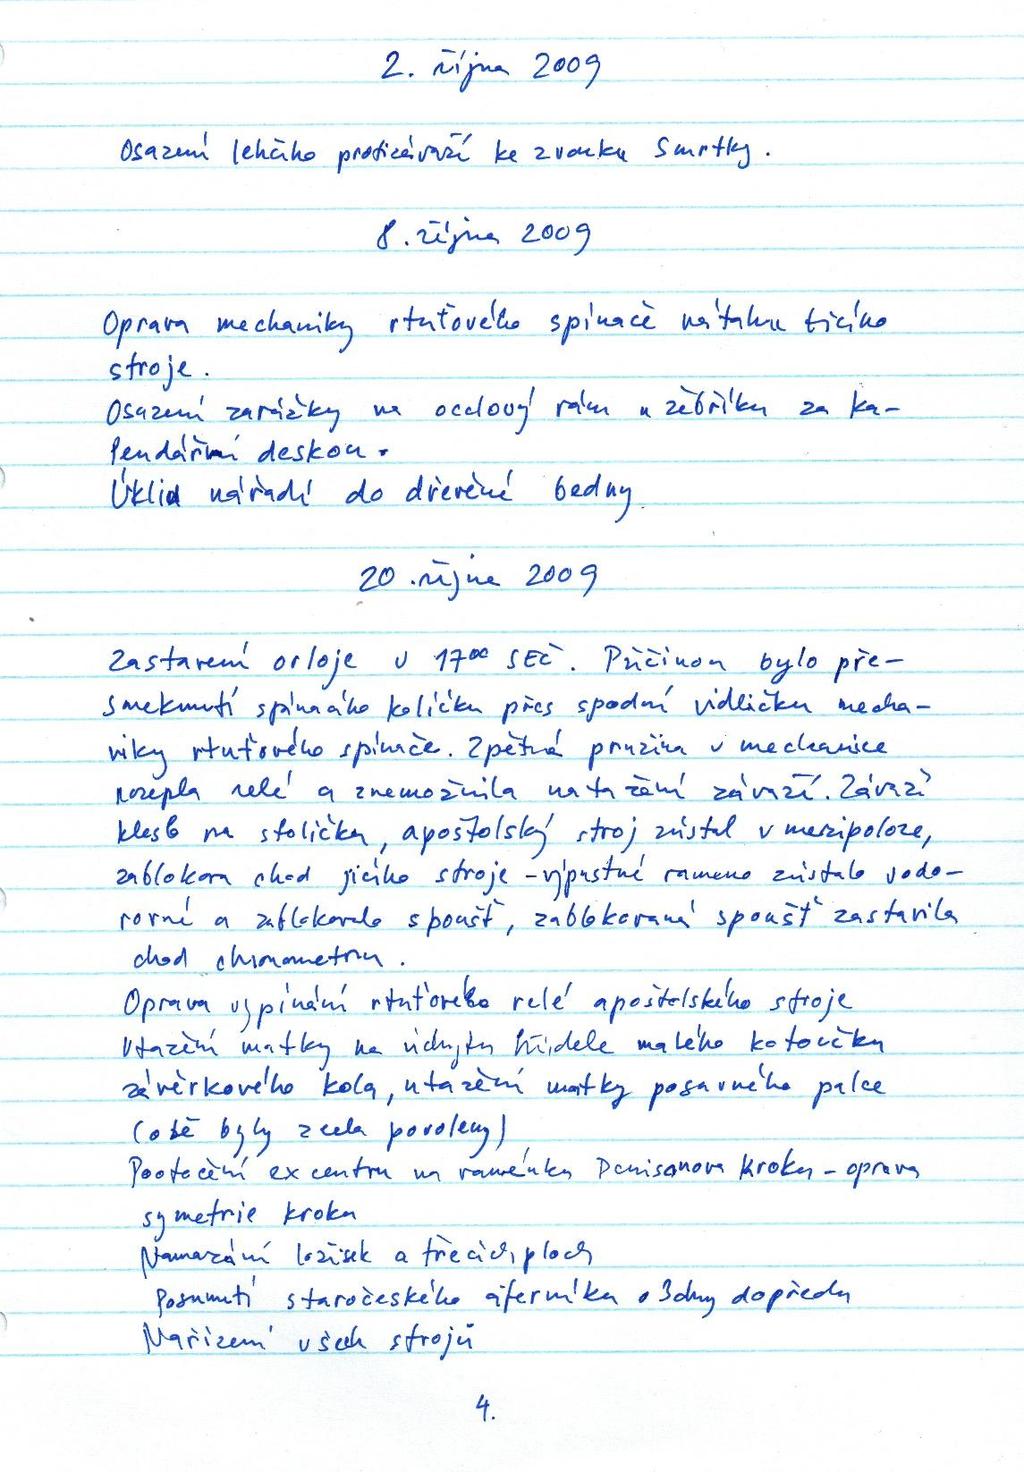 2. října 2009
Osazení lehčího protizávaží ke zvonku Smrtky.
8. října 2009
Oprava mechaniky rtuťového spínače nátahu bicího
stroje.
Osazení zarážky na ocelový rám u žebříku za ka-
lendářní deskou.
Úklid nářadí do dřevěné bedny
20. října 2009
Zastavení orloje v 17⁰⁰ SEČ. Příčinou bylo pře-
smeknutí spínacího kolíčku přes spodní vidličku mecha-
niky rtuťového spínače. Zpětná pružina v mechanice
relé a znemožnila natažení závaží. Závaží
kleslo na stoličku, apoštolský stroj zůstal v mezipoloze,
zablokova chod jicího stroje - výpustné rameno zůstalo vodo-
rovně a zablokovalo spoušť, zablokovaná spoušť zastavila
chod chronometru.
Oprava vypínání rtuťového relé apoštolského stroje
Utažení matky na úchytu hřídele malého kotoučku
závěrkového kola, utažení matky posuvného palce
(obě byly zcela povoleny)
Pootočení excentru na raménku Denisonova kroku - oprava
symetrie kroku
Namazání ložisek a třecích ploch
Posunutí staročeského ciferníku o 3 dny dopředu
Nařízení všech strojů
4.